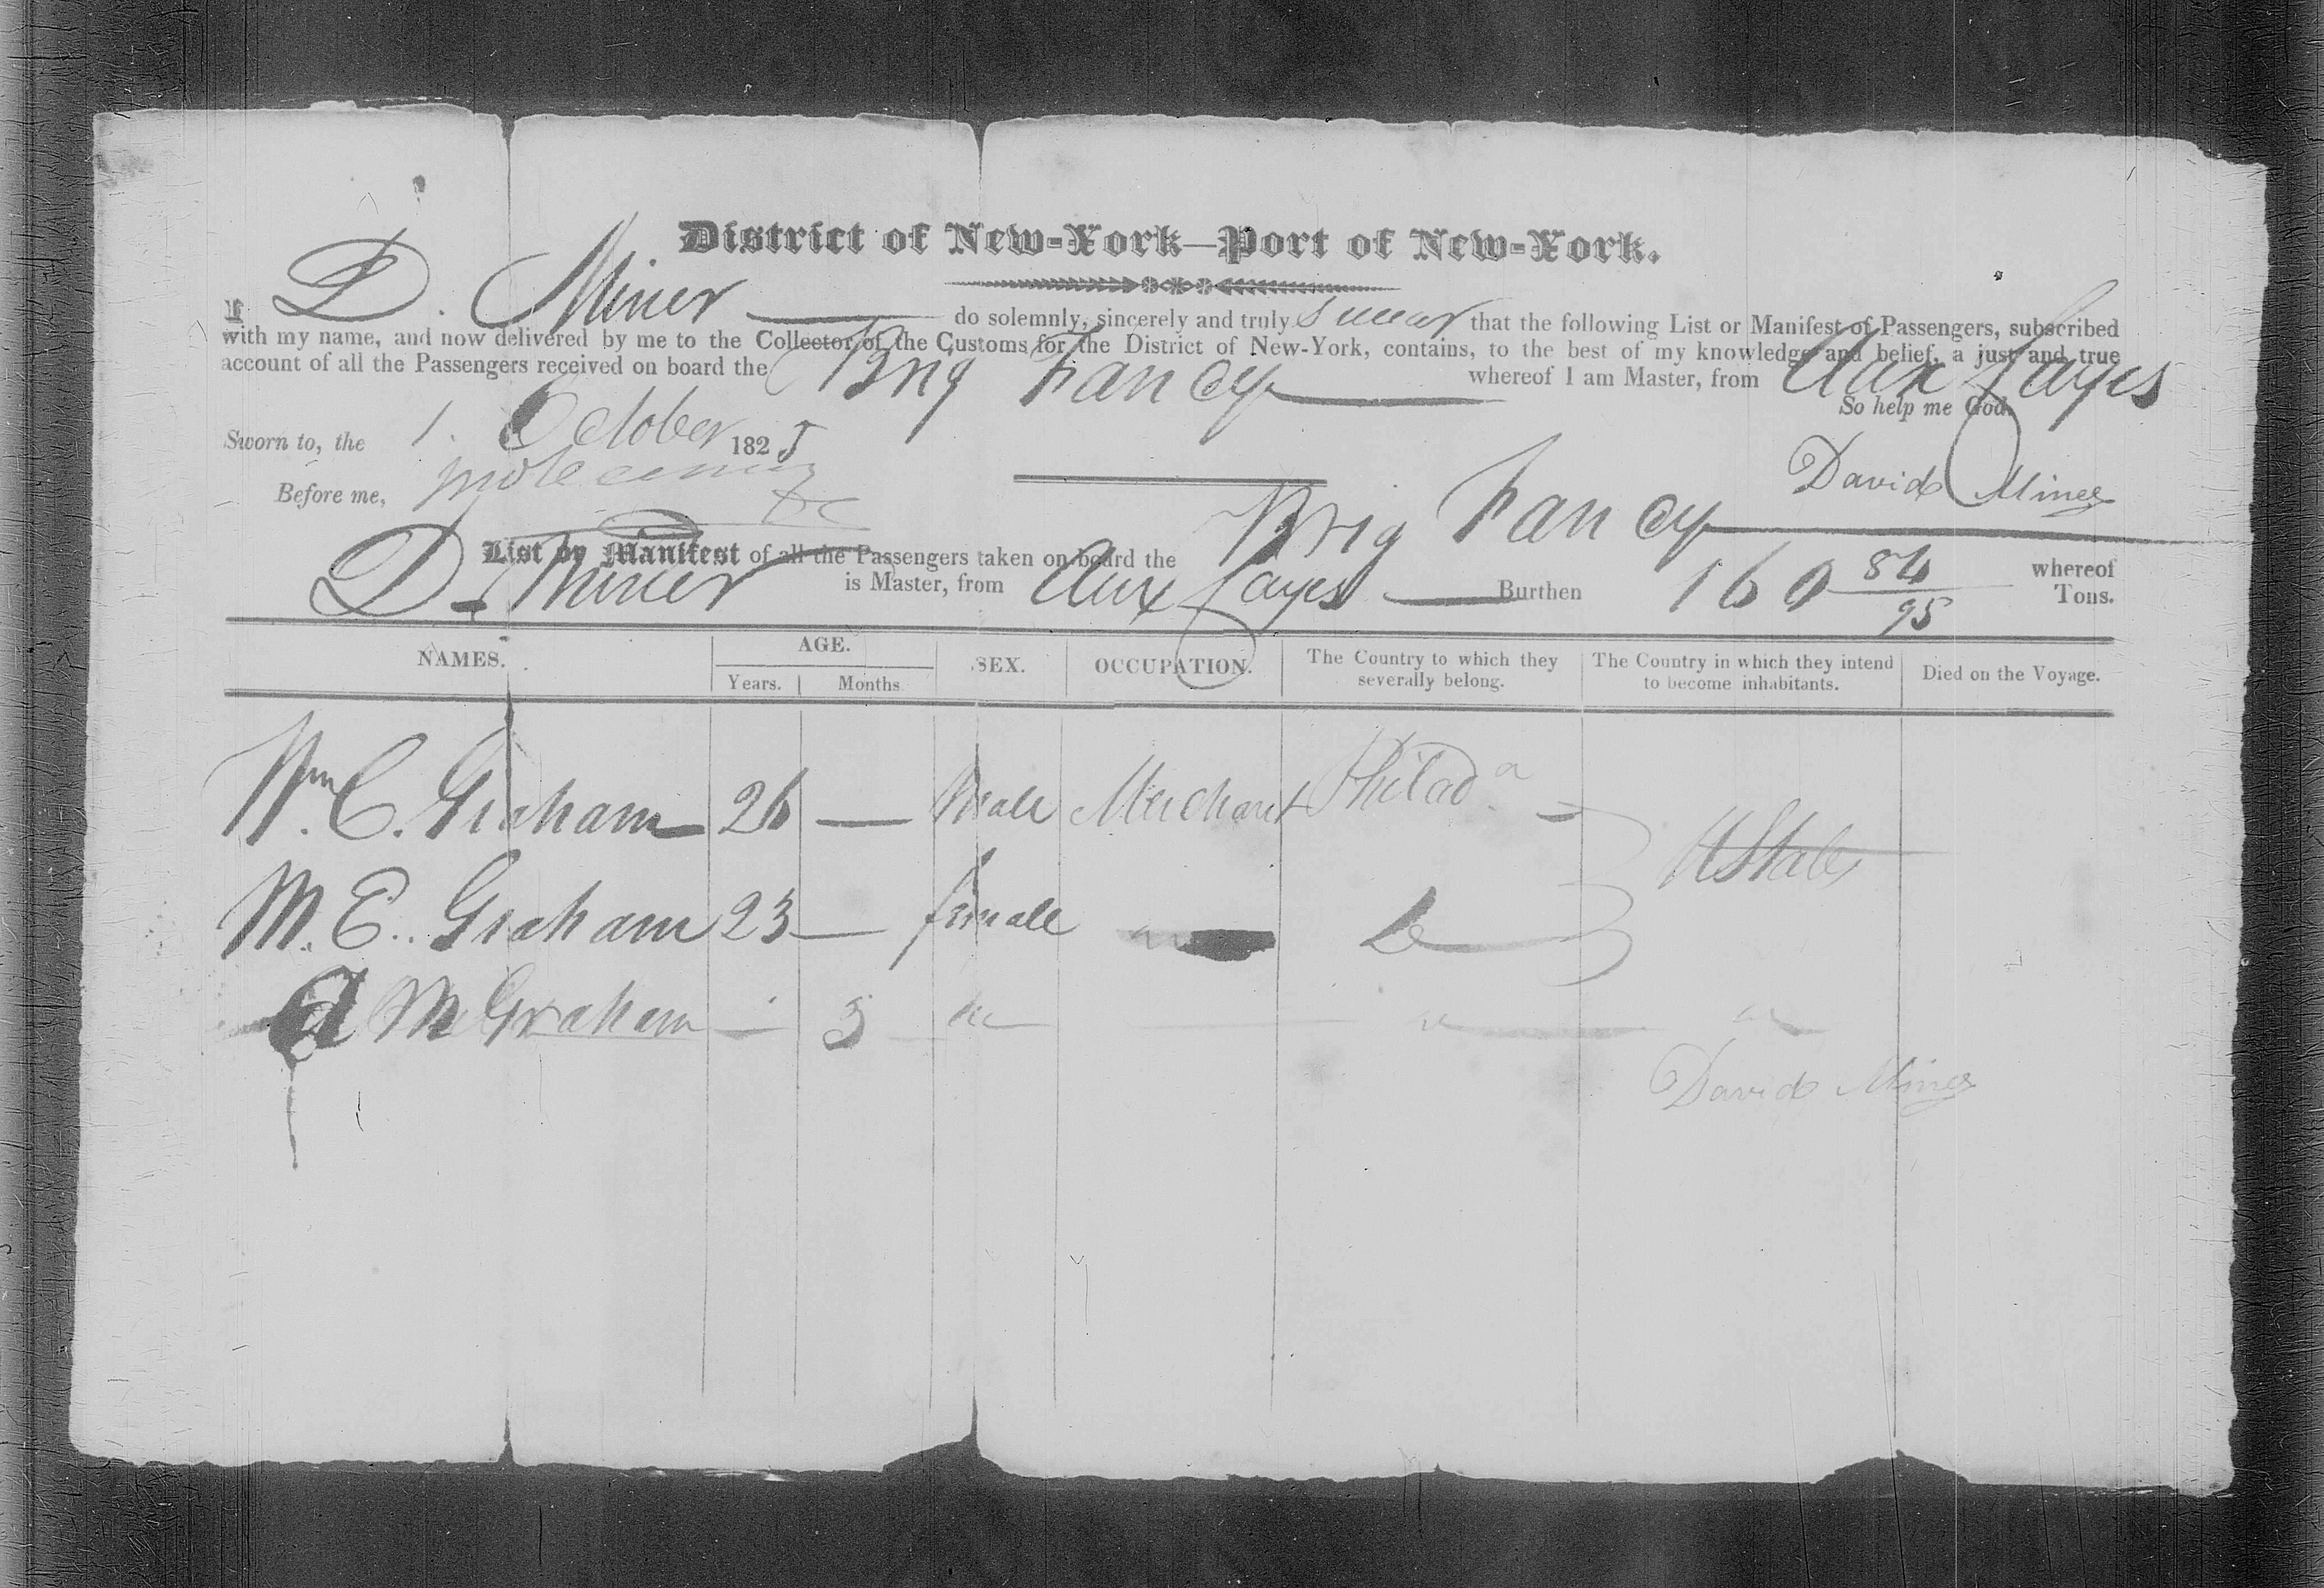 District of New-York—Port of New-York.
I D. Miner do solemnly, sincerely and truly swear that the following List or Manifest of Passengers, subscribed
with my name, and now delivered by me to the Collector of the Customs for the District of New-York, contains, to the best of my knowledge and belief, a just and true
account of all the Passengers received on board the Brig Fancy whereof I am Master, from Aux Cayes
So help me God.
Sworn to, the 1. October 1825
David Miner
Before me,
List or Manifest of all the Passengers taken on board the Brig Fancy whereof
D. Miner is Master, from Aux Cayes Burthen 160 84/95 Tons.
NAMES. AGE. Years. Months SEX. OCCUPATION. The Country to which they severally belong. The Country in which they intend to become inhabitants. Died on the Voyage.
Wm. C. Graham 26 — Male Merchant Philad.a
U States
M. E. Graham 23 — female
A M Graham — 3 "
David Miner